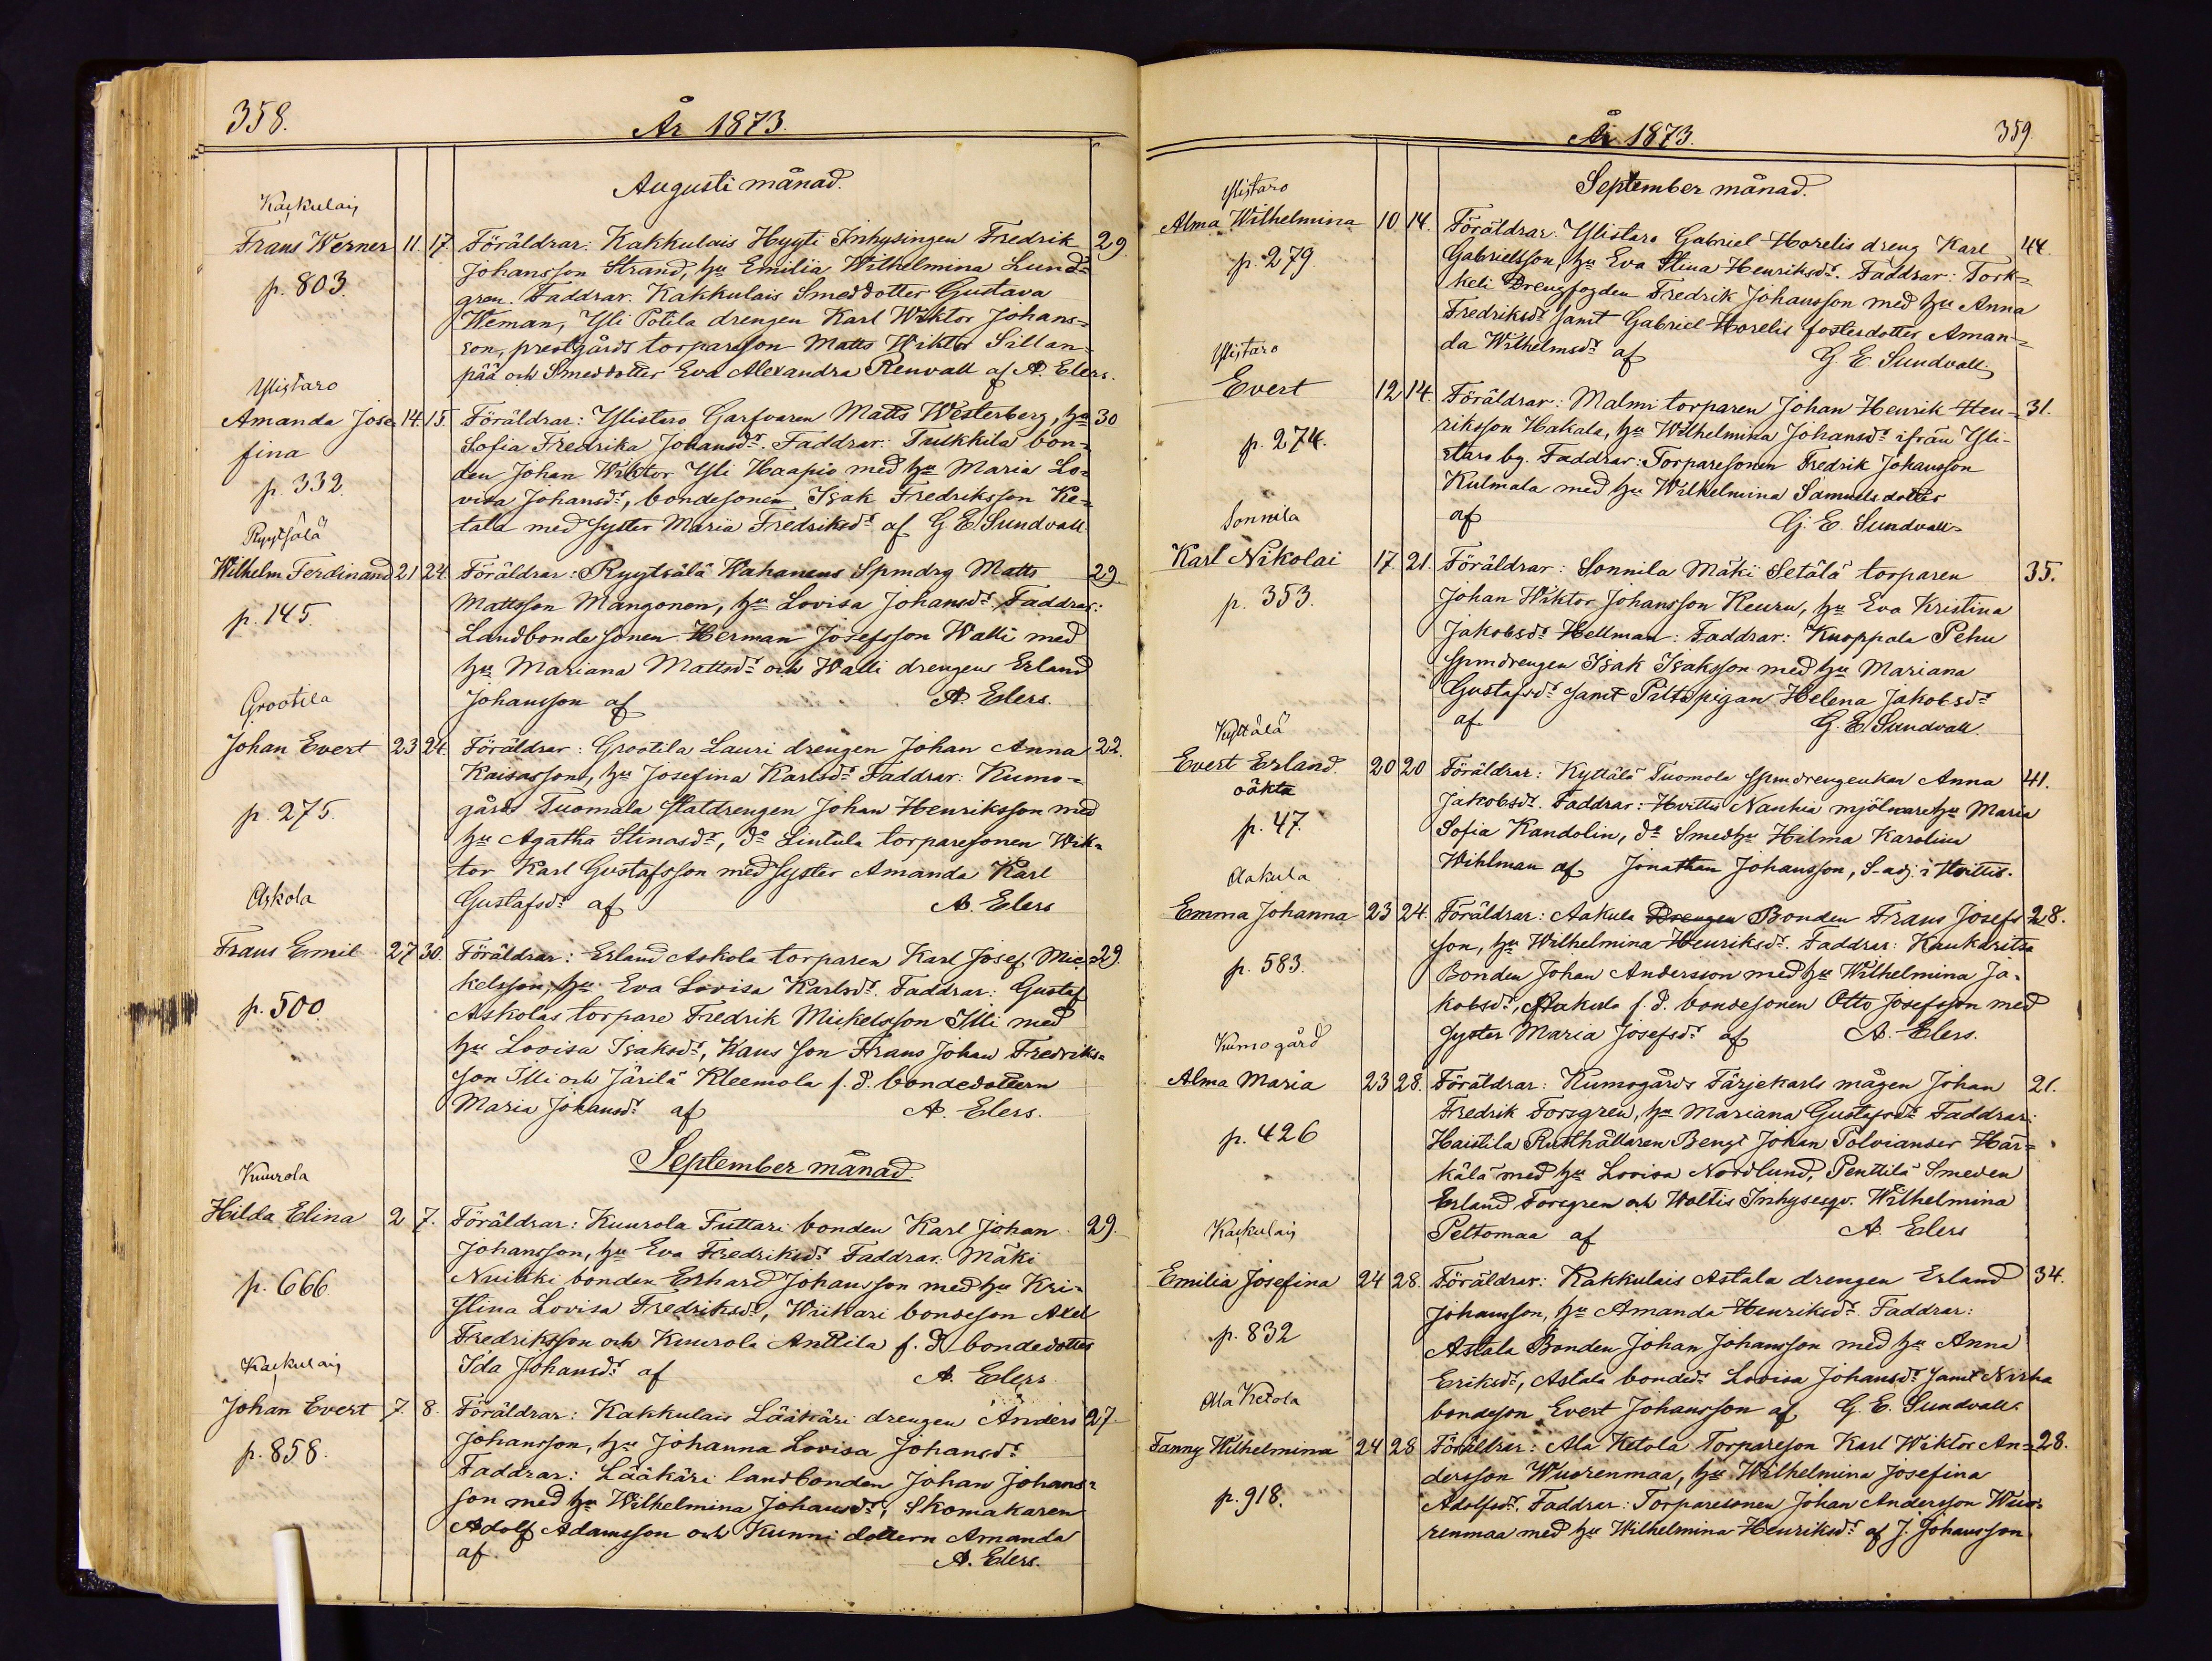 358.
År 1873.
Augusti månad.
Kackulais
Frans Werner 11. 17. Föräldrar: Kakkulais Hyyti Inhysingen Fredrik 29.
p. 803.
Johansson Strand, hu Emilia Wilhelmina Lund-
gren. Faddrar. Kakkulais Smeddotter Gustava
Weman, Yli Potila drengen Karl Wiktor Johans-
son, prestgårds torpareson Matts Wiktor Sillan-
pää och Smeddotter Eva Alexandra Renvall af A. Elers.
Ylistaro
Amanda Jose- 14. 15. Föräldrar: Ylistaro Garfvaren Matts Westerberg, hu 30
fina
p. 332.
Sofia Fredrika Johansdr. Faddrar: Tulkkila bon-
den Johan Wiktor Yli Haapio med hu Maria Lo-
visa Johansdr, bondesonen Isak Fredriksson Ke-
tala med syster Maria Fredriksdr af G E Sundvall
Ryytsälä
Wilhelm Ferdinand 21 24. Föräldrar: Ryytsälä Wahanens Spmdrg Matts 29.
p. 145.
Mattsson Mangonen, hu Lovisa Johansdr, Faddrar:
Landbondesonen Herman Josefsson Walli med
hu Mariana Mattsdr och Walli drengen Erland
Johansson af A. Elers.
Grootila
Johan Evert 23 24. Föräldrar: Grootila Lauri drengen Johan Anna 22.
p. 275.
Kaisasson, hu Josefina Karlsdr Faddrar: Kumo-
gårds Tuomala statdrengen Johan Henriksson med
hu Agatha Stinasdr, do Lintula torparesonen Wik-
tor Karl Gustafsson med syster Amanda Karl
Gustafsdr af A. Elers
Askola
Frans Emil 27 30. Föräldrar: Erland Askola torparen Karl Josef Mic- 29.
p. 500.
kelsson, hu Eva Lovisa Karlsdr. Faddrar: Gustaf
Askolas torpare Fredrik Mickelsson Illi med
hu Lovisa Isaksdr, Hans son Frans Johan Fredriks-
son Illi och Järilä Kleemola f. d. bondedottern
Maria Johansdr af A. Elers.
September månad.
Kuurola
Hilda Elina 2 7. Föräldrar: Kuurola Futtari bonden Karl Johan 29.
p. 666.
Johansson, hu Eva Fredriksdr Faddrar. Mäki
Nuikki bonden Erhard Johansson med hu Kri-
stina Lovisa Fredriksdr, Wiikari bondeson Axel
Fredriksson och Kuurola Anttila f. d. bondedotter
Ida Johansdr af A. Elers
Kackulais
Johan Evert 7. 8. Föräldrar: Kakkulais Lääkäri drengen Anders 27.
p. 858.
Johansson, hu Johanna Lovisa Johansdr
Faddrar: Lääkäri landbonden Johan Johans-
son med hu Wilhelmina Johansdr, Skomakaren
Adolf Adamsson och Kunni dottern Amanda
af. A. Elers.
År 1873.
359.
September månad.
Ylistaro
Alma Wilhelmina 10 14. Föräldrar: Ylistaro Gabriel Horelis dreng Karl 44.
p. 279
Gabrielsson, hu Eva Stina Henriksdr. Faddrar: Tork-
keli Drengfogden Fredrik Johansson med hu Anna
Fredriksdr samt Gabriel Horelis fosterdotter Aman-
da Wilhelmsdr af G. E. Sundvall.
Ylistaro
Evert 12 14. Föräldrar: Malmi torparen Johan Henrik Hen- 31.
p. 274.
riksson Hakala, hu Wilhelmina Johansdr ifrån Yli-
staro by. Faddrar: Torparesonen Fredrik Johansson
Kulmala med hu Wilhelmina Samuelsdotter
af G. E. Sundvall.
Sonnila
Karl Nikolai 17 21. Föräldrar: Sonnila Mäki Setälä torparen 35.
p. 353.
Johan Wiktor Johansson Keuru, hu Eva Kristina
Jakobsdr Hellman: Faddrar: Knoppala Pehu
Spmdrengen Isak Isaksson med hu Mariana
Gustafsdr samt Paltapigan Helena Jakobsdr
af G. E. Sundvall.
Kyttälä
Evert Erland. 20 20 Föräldrar: Kyttälä Tuomola Spmdrengenkan Anna 41.
oäkta
p. 47.
Jakobsdr. Faddrar: Hvittis Nanhia mjölnarehu Maria
Sofia Kandolin, do Smedhu Hilma Karolina
Wihlman af Jonathan Johansson, S-adj. i Hvittis.
Aakula
Emma Johanna 23 24. Föräldrar: Aakula Drengen Bonden Frans Josefs 28.
p. 583.
son, hu Wilhelmina Henriksdr. Faddrar: Kaukaritsa
Bonden Johan Andersson med hu Wilhelmina Ja-
kobsdr, Aakula f. d. bondesonen Otto Josefsson med
syster Maria Josefsdr af A. Elers.
Kumogård
Alma Maria 23 28. Föräldrar: Kumogårds Färjekarls mågen Johan 21.
p. 426
Fredrik Forsgren, hu Mariana Gustafsdr Faddrar:
Haistila Rusthållaren Bengt Johan Polviander Här-
kälä med hu Lovisa Nordlund, Penttilä Smeden
Erland Forsgren och Woltis Inhysesqv. Wilhelmina
Peltomaa af A. Elers
Kackulais
Emilia Josefina 24 28. Föräldrar: Kakkulais Astala drengen Erland 34.
p. 832
Johansson, hu Amanda Henriksdr. Faddrar:
Astala Bonden Johan Johansson med hu Anna
Eriksdr, Astala bondedr Lovisa Johansdr samt Nirha
bondeson Evert Johansson af G. E. Sundvall.
Ala Ketola
Fanny Wilhelmina 24 28 Föräldrar: Ala Ketola Torpareson Karl Wiktor An- 28.
p. 918.
dersson Wuorenmaa, hu Wilhelmina Josefina
Adolfsdr. Faddrar: Torparesonen Johan Andersson Wuo-
renmaa med hu Wilhelmina Henriksdr af J. Johansson.